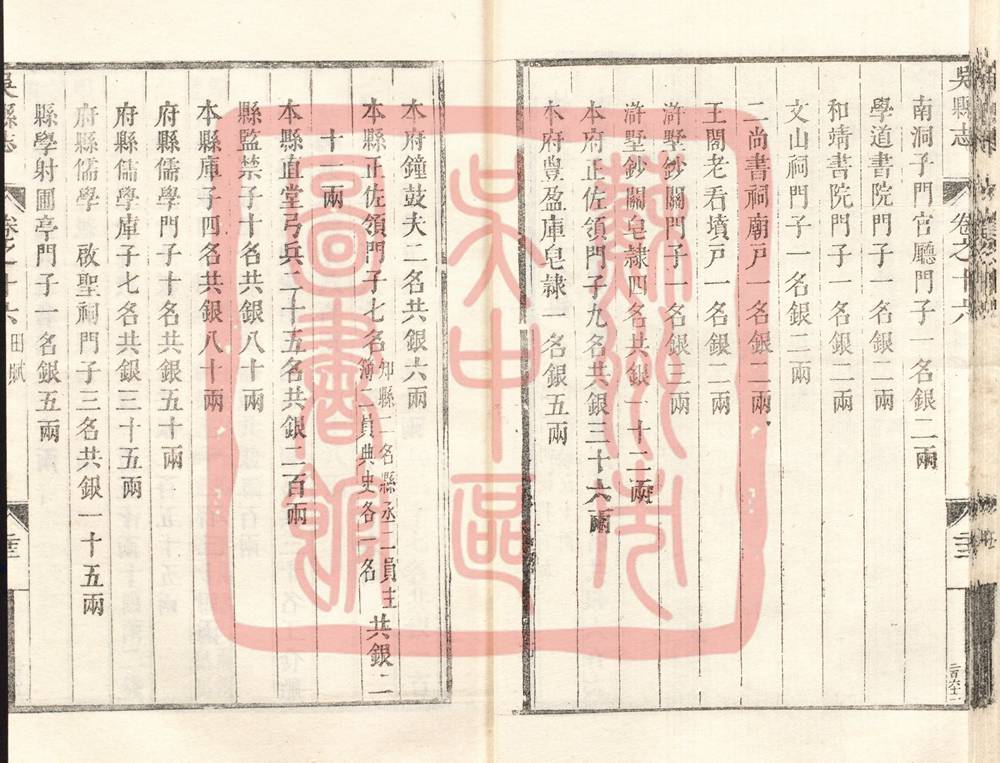 吳縣志
卷之十六
南洞子門官廳門子一名銀二兩
學道書院門子一名銀二兩
和靖書院門子一名銀二兩
文山祠門子一名銀二兩
二尚書祠廟戶一名銀二兩
王閣老看墳戶一名銀二兩
滸墅鈔關門子一名銀三兩
滸墅鈔關皂隸四名共銀一十二兩
本府正佐領門子九名共銀三十六兩
本府豐盈庫皂隸一名銀五兩
本府鐘鼓夫二名共銀六兩
本縣正佐領門子七名知縣二名縣丞二員主簿二員典史各一名共銀二
十一兩
本縣直堂弓兵二十五名共銀二百兩
縣監禁子十名共銀八十兩
本縣庫子四名共銀八十兩
府縣儒學門子十名共銀五十兩
府縣儒學庫子七名共銀三十五兩
府縣儒學 啟聖祠門子三名共銀一十五兩
縣學射圃亭門子一名銀五兩
吳縣志
卷之十六
田賦
蘇州市
吳中區
圖書館